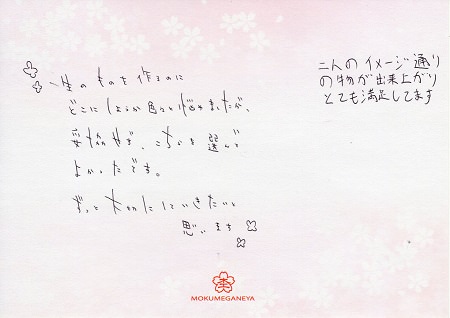 一生のものを作るのに
どこにしようか色々と悩みましたが、
妥協せず、こちらを選んで
よかったです。
ずっと大切にしていきたいと
思います
二人のイメージ通り
の物が出来上がり
とても満足してます
MOKUMEGANEYA